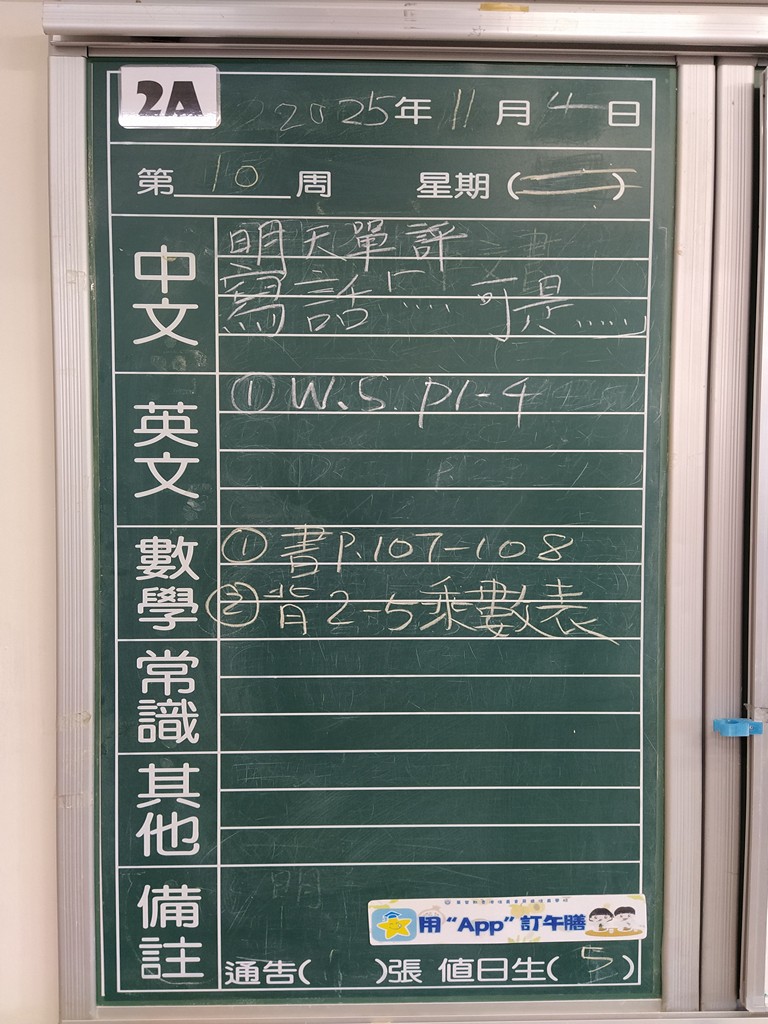 2A
2025年11月4日
第10周 星期(二)
中文
明天單評
寫話「…… 可是……」
英文
① W.S. P1-4
數學
① 書P.107-108
② 背2-5乘數表
常識
其他
備註
用“App”訂午膳
通告( )張 值日生(5)